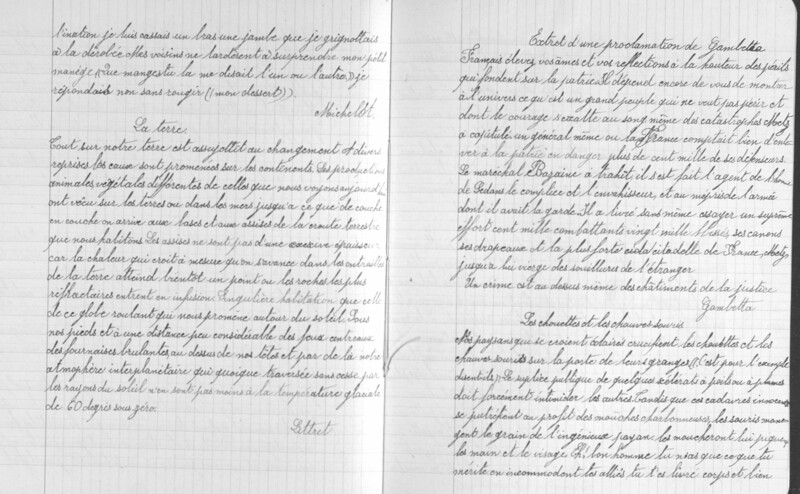 l'ination je luis cassais un bras une jambe que je grignottais
à la dérobée Mes voisins ne tardèrent à surprendre mon petit
manège ((Que manges tu la me disait l'un ou l'autre)) je
répondais non sans rougir ((mon dessert)).
Michelet.
La terre.
Tout sur notre terre est assujetted au changement A divers
reprises les eaux sont promenées sur les continents. Des productions
animales végétales différentes de celles que nous voyons aujourd'hui
ont vécu sur les terres ou dans les mers jusqu'à ce que de couche
en couche on arrive aux bases et aux assises de la croute terrestre
que nous habitons Ses assises ne sont pas d'une excecive épaisseur
car la chaleur qui croit a mesure qu'on s'avance dans les entrailles
de la terre atteind bientôt un point ou les roches les plus
réfractaires entrent en infusion Singulière habitation que celle
de ce globe roulant qui nous promène autour du soleil Sous
nos pieds et à une distance peu considérable des feux centreaux
des fournaises brulantes au dessus de nos têtes et par de la notre
atmosphère interplanétaire qui quoique traversée sans cesse par
les rayons du soleil n'en sont pas moins à la température glaciale
de 60 degrés sous zéro
Littret
Extret d'une proclamation de Gambetta
Français élevez vos âmes et vos reflections à la hauteur des périls
qui fondent sur la patrie Il dépend encore de vous de montrer
à l'univers ce qu'est un grand peuple qui ne veut pas périr et
dont le courage s'exalte au sang même des catastrophes Metz
a capitulé un général même ou la France comptait bien d'enle
ver à la patrie en danger plus de cent mille de se défenseurs.
Le maréchal Bazaine à trahit il s'est fait l'agent de l'homme
de Sedans le complice et l'envahisseur, et au mépris de l'armée
dont il avait la garde Il a livré sans même essayer un suprême
effort cent mille combattants vingt mille blessés ses canons
ses drapeaux et la plus forte citadelle de France, Metz,
jusqu'à lui vierge des souillures de l'étranger
Un crime est au dessus même des châtiments de la justice
Gambetta
Les chouettes et les chauves souris
Nos paysans qui se croient éclairés crucifient les chouettes et les
chauves souris sur la porte de leurs granges ((C'est pour l'exemple
disent ils)) Le suplice publique de quelques scélérats à poils ou à plumes
doit forcément intimider les autres. Tandis que ces cadavres innocents
se putréfient au profit des mouches charbonneuses, les souris man
gent le grain de l'ingénieux paysan, les moucherons lui piquent
les main et le visage Eh! bon homme tu n'as que ce que tu
mérite en incommodent tes alliés tu t'es livré corps et bien